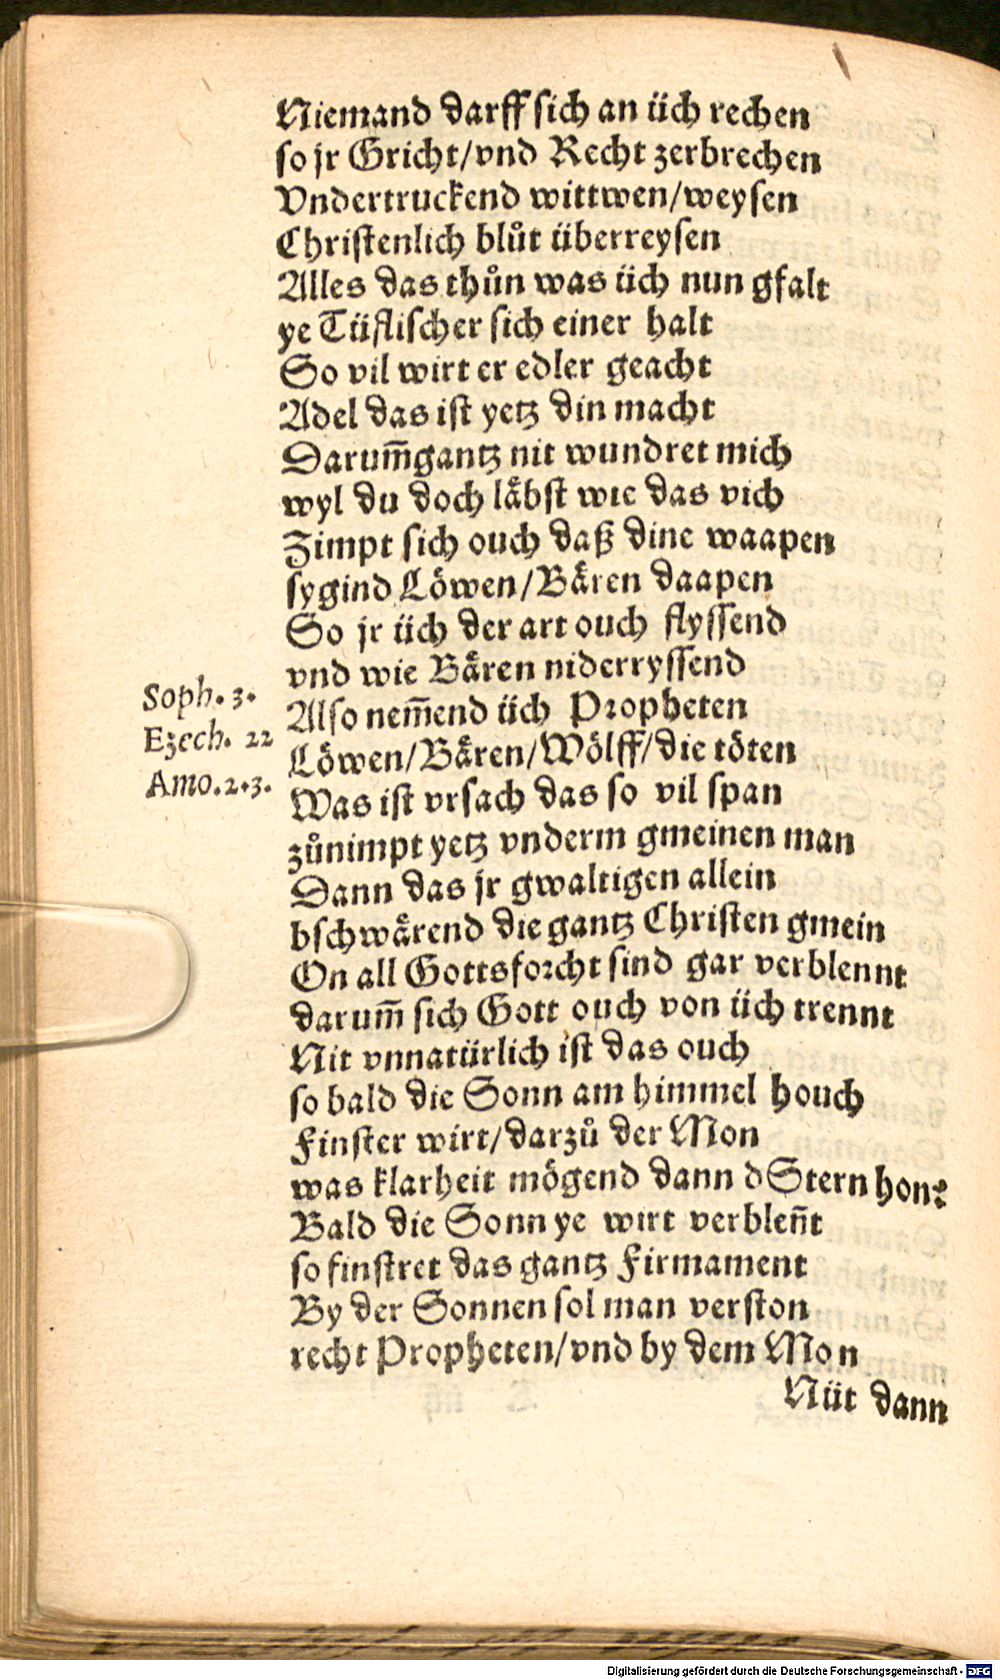 Niemand darff sich an üch rechen
so jr Gricht/vnd Recht zerbrechen
Vndertruckend wittwen/weysen
Christenlich blůt überreysen
Alles das thůn was üch nun gfalt
ye Tüflischer sich einer halt
So vil wirt er edler geacht
Adel das ist yetz din macht
Darum̃ gantz nit wundret mich
wyl du doch laͤbst wie das vich
Zimpt sich ouch daß dine waapen
sygind Loͤwen/Baͤren daapen
So jr üch der art ouch flyssend
vnd wie Baͤren niderryssend
Soph. 3.
Also nem̃end üch Propheten
Ezech. 22
Loͤwen/Baͤren/Woͤlff/die toͤten
Amo. 2. 3.
Was ist vrsach das so vil span
zůnimpt yetz vnderm gmeinen man
Dann das jr gwaltigen allein
bschwaͤrend die gantz Christen gmein
On all Gottsforcht sind gar verblennt
darum̃ sich Gott ouch von üch trennt
Nit vnnatürlich ist das ouch
so bald die Sonn am himmel houch
Finster wirt/darzů der Mon
was klarheit moͤgend dann dStern hon?
Bald die Sonn ye wirt verblen̄t
so finstret das gantz Firmament
By der Sonnen sol man verston
recht Propheten/vnd by dem Mon
Nüt dann
Digitalisierung gefördert durch die Deutsche Forschungsgemeinschaft - DFG